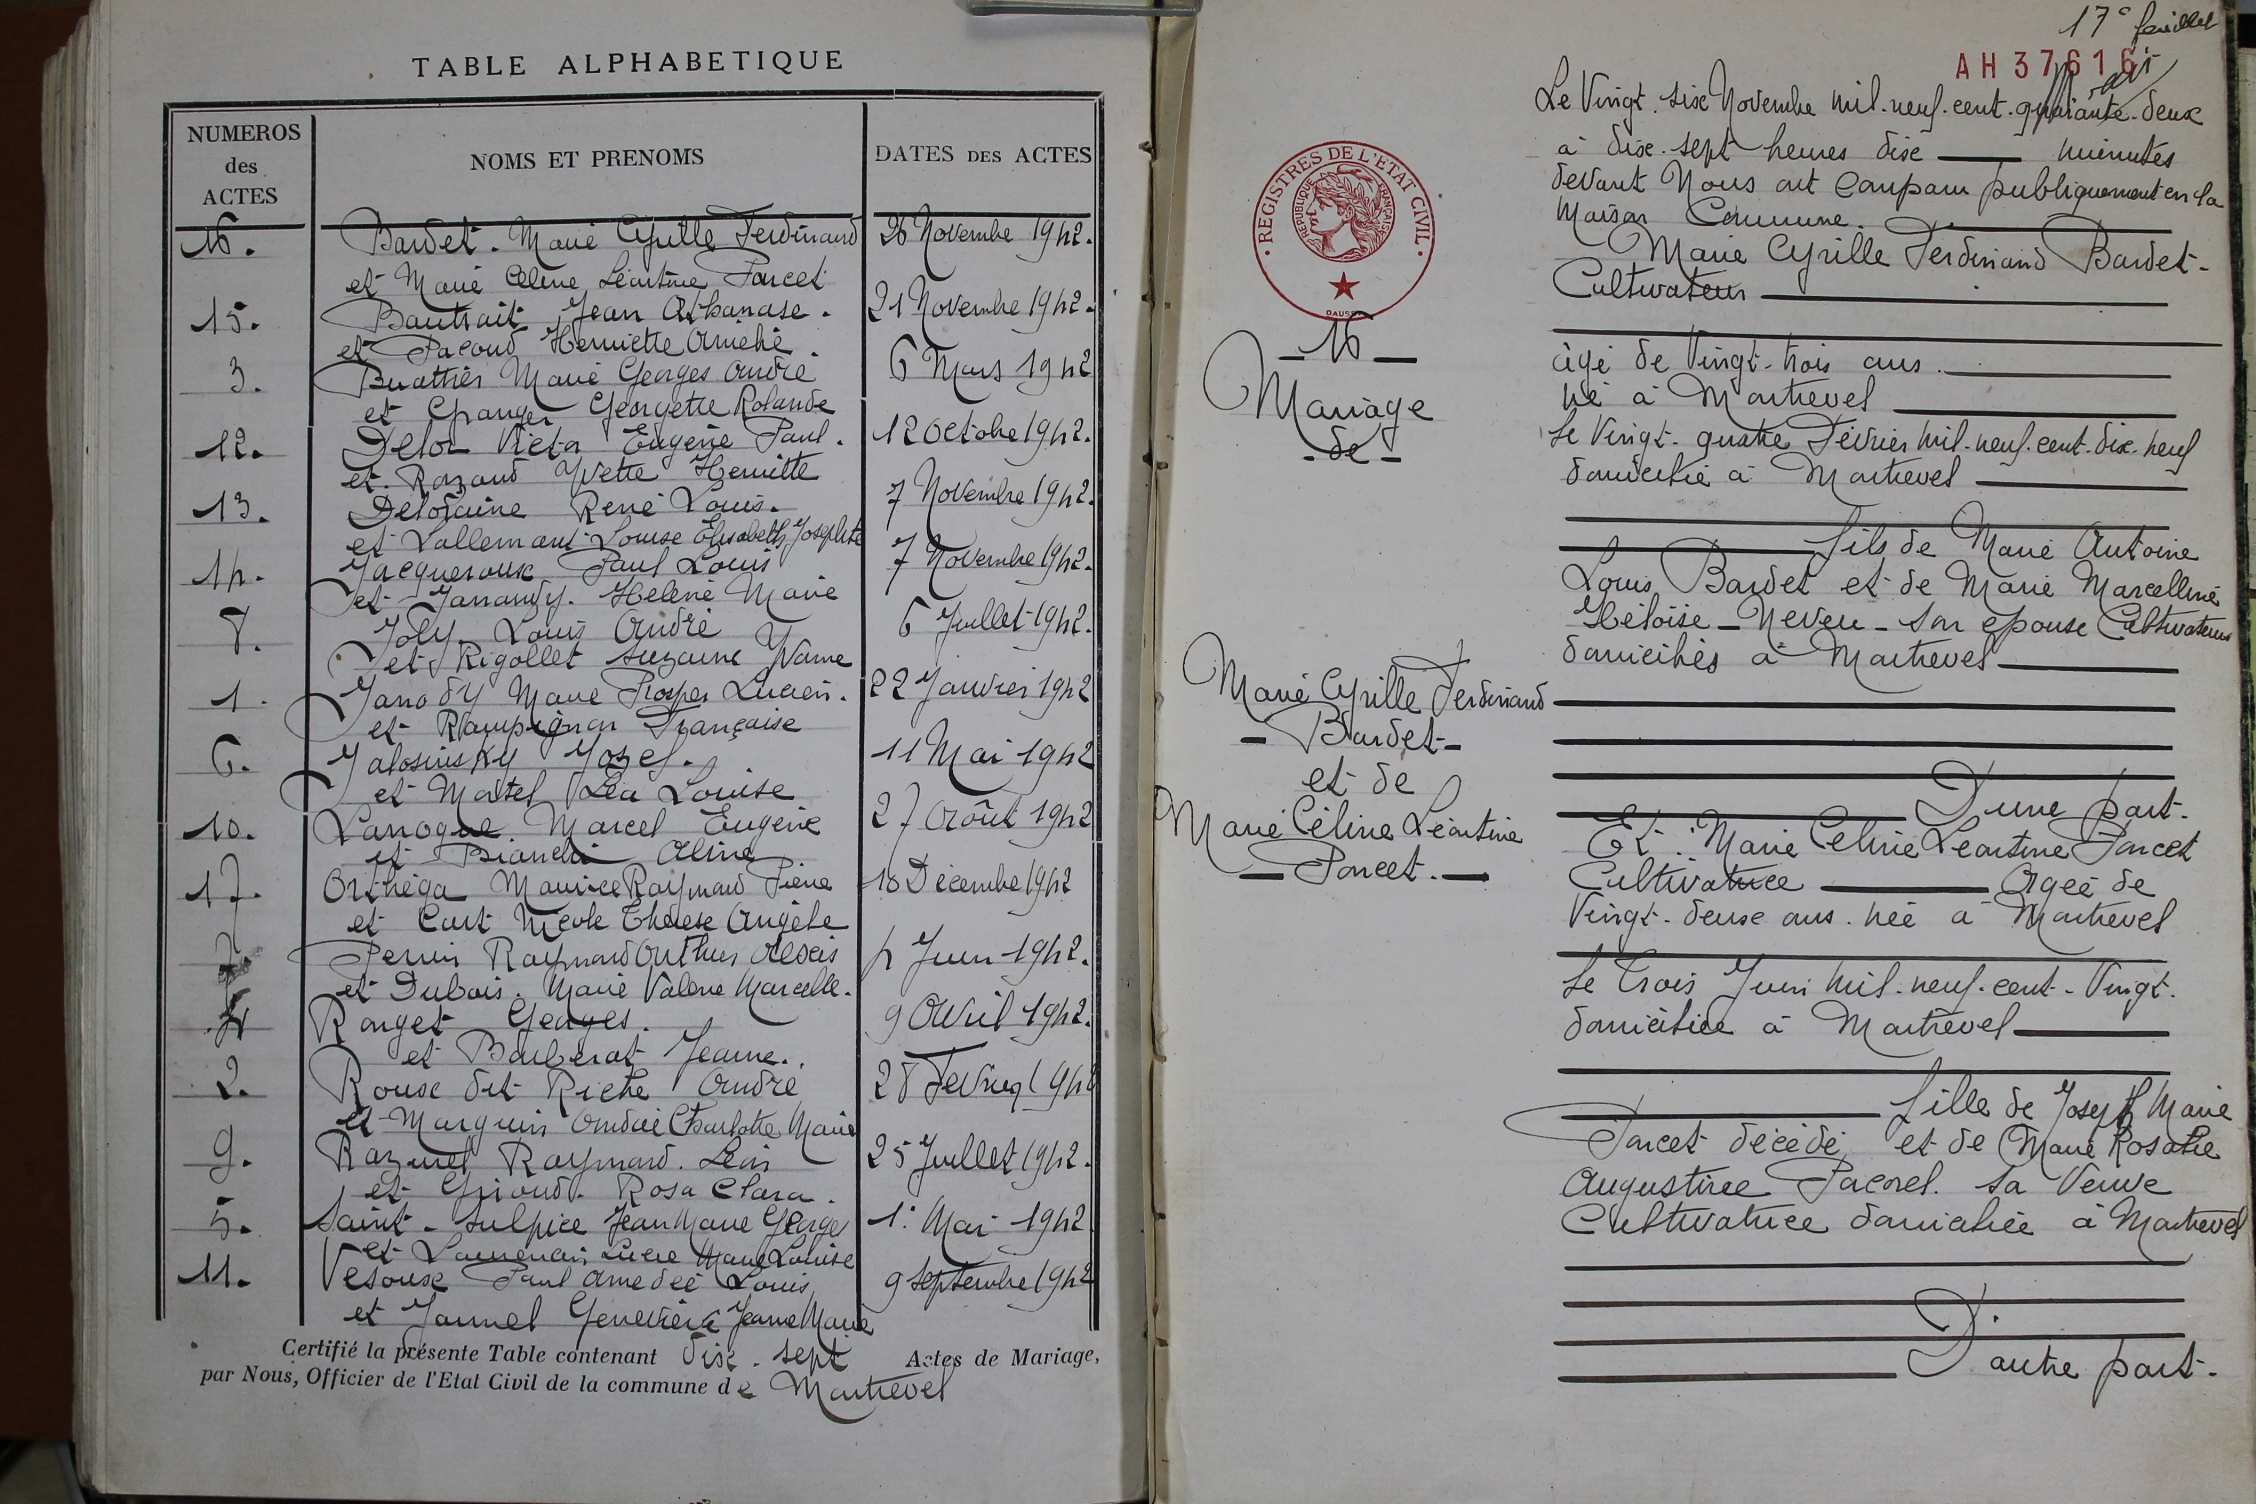 TABLE ALPHABETIQUE
NUMEROS des ACTES
NOMS ET PRENOMS
DATES DES ACTES
16. Bardet. Marie Cyrille Ferdinand 26 Novembre 1942.
et Marie Céline Léontine Poncet
15. Bautrait Jean Athanase. 21 Novembre 1942.
et Pacoud Henriette Amélie.
3. Buathier Marie Georges André 6 Mars 1942
et Granger Georgette Rolande
12. Delor Victor Eugène Paul. 12 Octobre 1942.
et Razand Yvette Henriette
13. Delofaine René Louis. 7 Novembre 1942.
et Lallemant Louise Elisabeth Josephte
14. Jacqueroux Paul Louis 7 Novembre 1942.
et Hélène Marie
8. Joly Louis André 6 Juillet 1942.
et Rigollet Suzanne
1. Janody Marie Prosper Lucien. 22 Janvier 1942
et Rampignon Françoise
6. Jalosinsky Jozef. 11 Mai 1942
et Martel Léa Louise
10. Lanogue Marcel Eugène 27 Août 1942
et Bianchi Aline
17. Orthéga Maurice Raymond Pierre 18 Décembre 1942
et Curt Nicole Thérèse Angèle
7. Perrin Raymond Arthur Alexis 4 Juin 1942.
et Dubois. Marie Valerie Marcelle.
4 Ronget Georges. 9 Avril 1942.
et Barberat Jeanne.
2. Roux dit Riche André 28 Fevrier 1942
et Marguin Andrée Charlotte Marie
9. Razurel Raymond. Léon 25 Juillet 1942.
et Giroud. Rosa Clara.
5. Saint-Sulpice Jean Marie Georges 1. Mai 1942
et Laurencin Lucie Marie Louise
11. Vesoux Paul Amedée Louis 9 Septembre 1942
et Jaunel Geneviève Jeanne Marie
Certifié la présente Table contenant dix-sept Actes de Mariage,
par Nous, Officier de l'Etat Civil de la commune de Montrevel
17e feuillet
AH 37616
REGISTRES DE L'ETAT CIVIL
REPUBLIQUE FRANÇAISE
-16-
Mariage
-de-
Marie Cyrille Ferdinand
-Bardet-
et de
Marie Céline Léontine
-Poncet.-
Le Vingt-six Novembre mil-neuf-cent-quarante-deux
à dix-sept heures dix minutes
devant Nous ont comparu publiquement en la
Maison Commune.
Marie Cyrille Ferdinand Bardet-
Cultivateur
âgé de Vingt-trois ans.
né à Montrevel
le Vingt-quatre Février mil-neuf-cent-dix-neuf
domicilié à Montrevel
fils de Marie Antoine
Louis Bardet et de Marie Marcelline
Héloïse-Neveu-son epouse Cultivateurs
domiciliés à Montrevel
D'une part.
Et: Marie Celine Leontine Poncet
Cultivatrice Agée de
Vingt-deux ans. née à Montrevel
le Trois Juin mil-neuf-cent-Vingt.
domiciliée à Montrevel
fille de Joseph Marie
Poncet décédé et de Marie Rosalie
Augustine Pacorel. sa Veuve
Cultivatrice domiciliée à Montrevel
D'autre part.